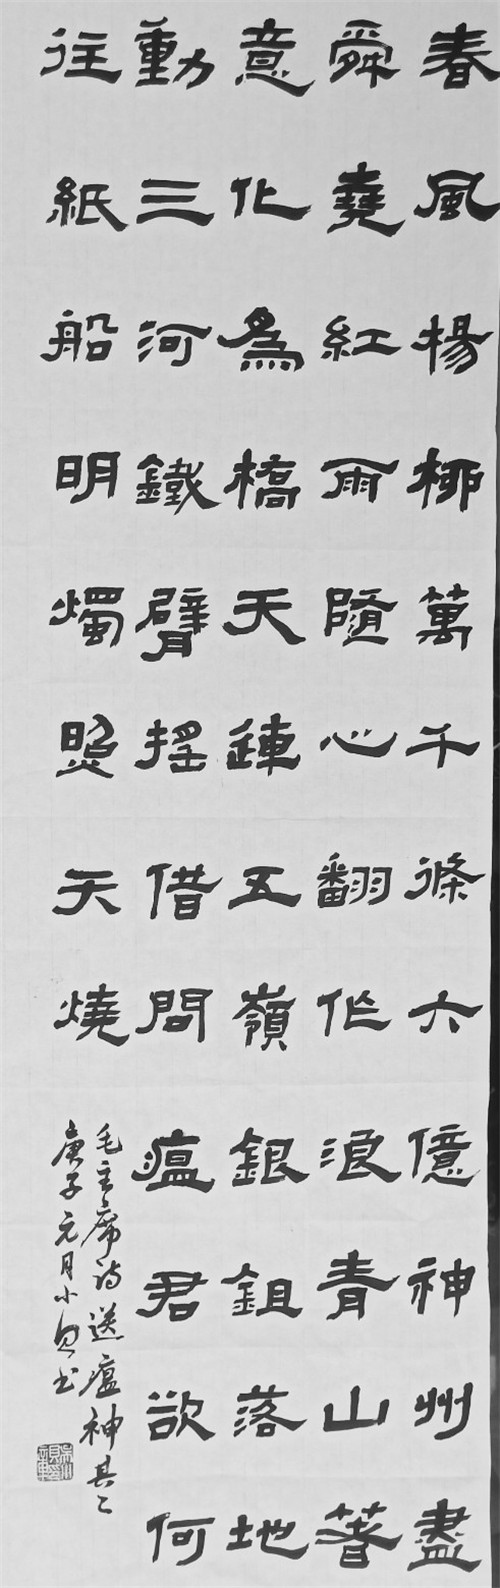 春風楊柳萬千條六億神州盡
舜堯紅雨隨心翻作浪青山著
意化為橋天連五嶺銀鉏落地
動三河鐵臂搖借問瘟君欲何
往紙船明燭照天燒
毛主席詩送瘟神其二
庚子元月小